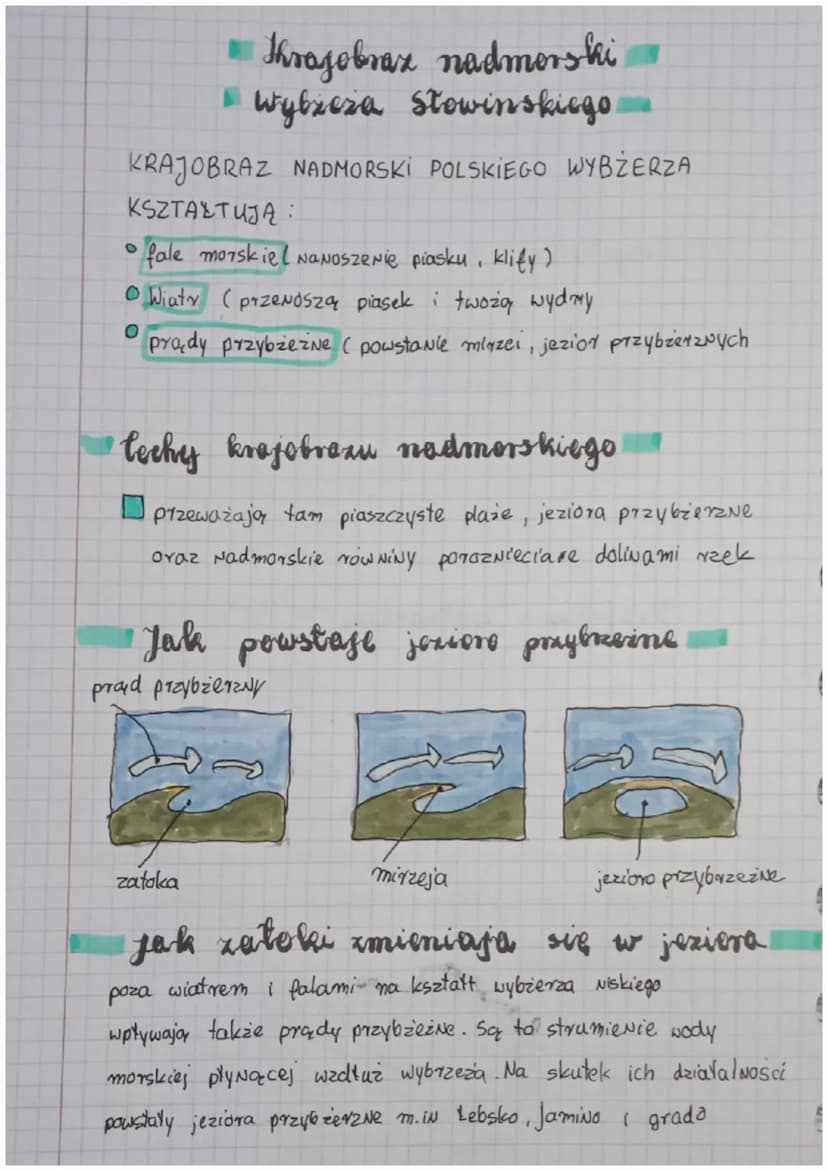 Krajobraz nadmorski
Wybżeża Słowinskiego
KRAJOBRAZ NADMORSKI POLSKIEGO WYBŻERZA
KSZTAŁTUJĄ :
fale morskie ( NANOSZENIE piasku , klify )
Wiatr ( przenoszą piasek i twożą wydmy
prądy przybżeżne ( powstanie mirzei , jezior przybżerznych
Cechy krajobrazu nadmorskiego
przeważają tam piaszczyste plaże , jeziora przybżerzne
oraz nadmorskie równiny poroznieciane dolinami rzek
Jak powstaje jezioro przybrzeżne
prąd przybżerzny
zatoka
mirzeja
jezioro przybrzeżne
Jak zatoki zmieniają się w jeziora
poza wiatrem i falami na kształt wybżerza niskiego
wpływają także prądy przybżeżne. Są to strumienie wody
morskiej płynącej wzdłuż wybrzeża. Na skutek ich działalności
powstały jeziora przybżerzne m.in Łebsko, Jamino i grado